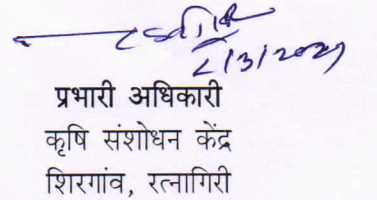 प्रभारी अधिकारी
कृषि संशोधन केंद्र
शिरगांव, रत्नागिरी